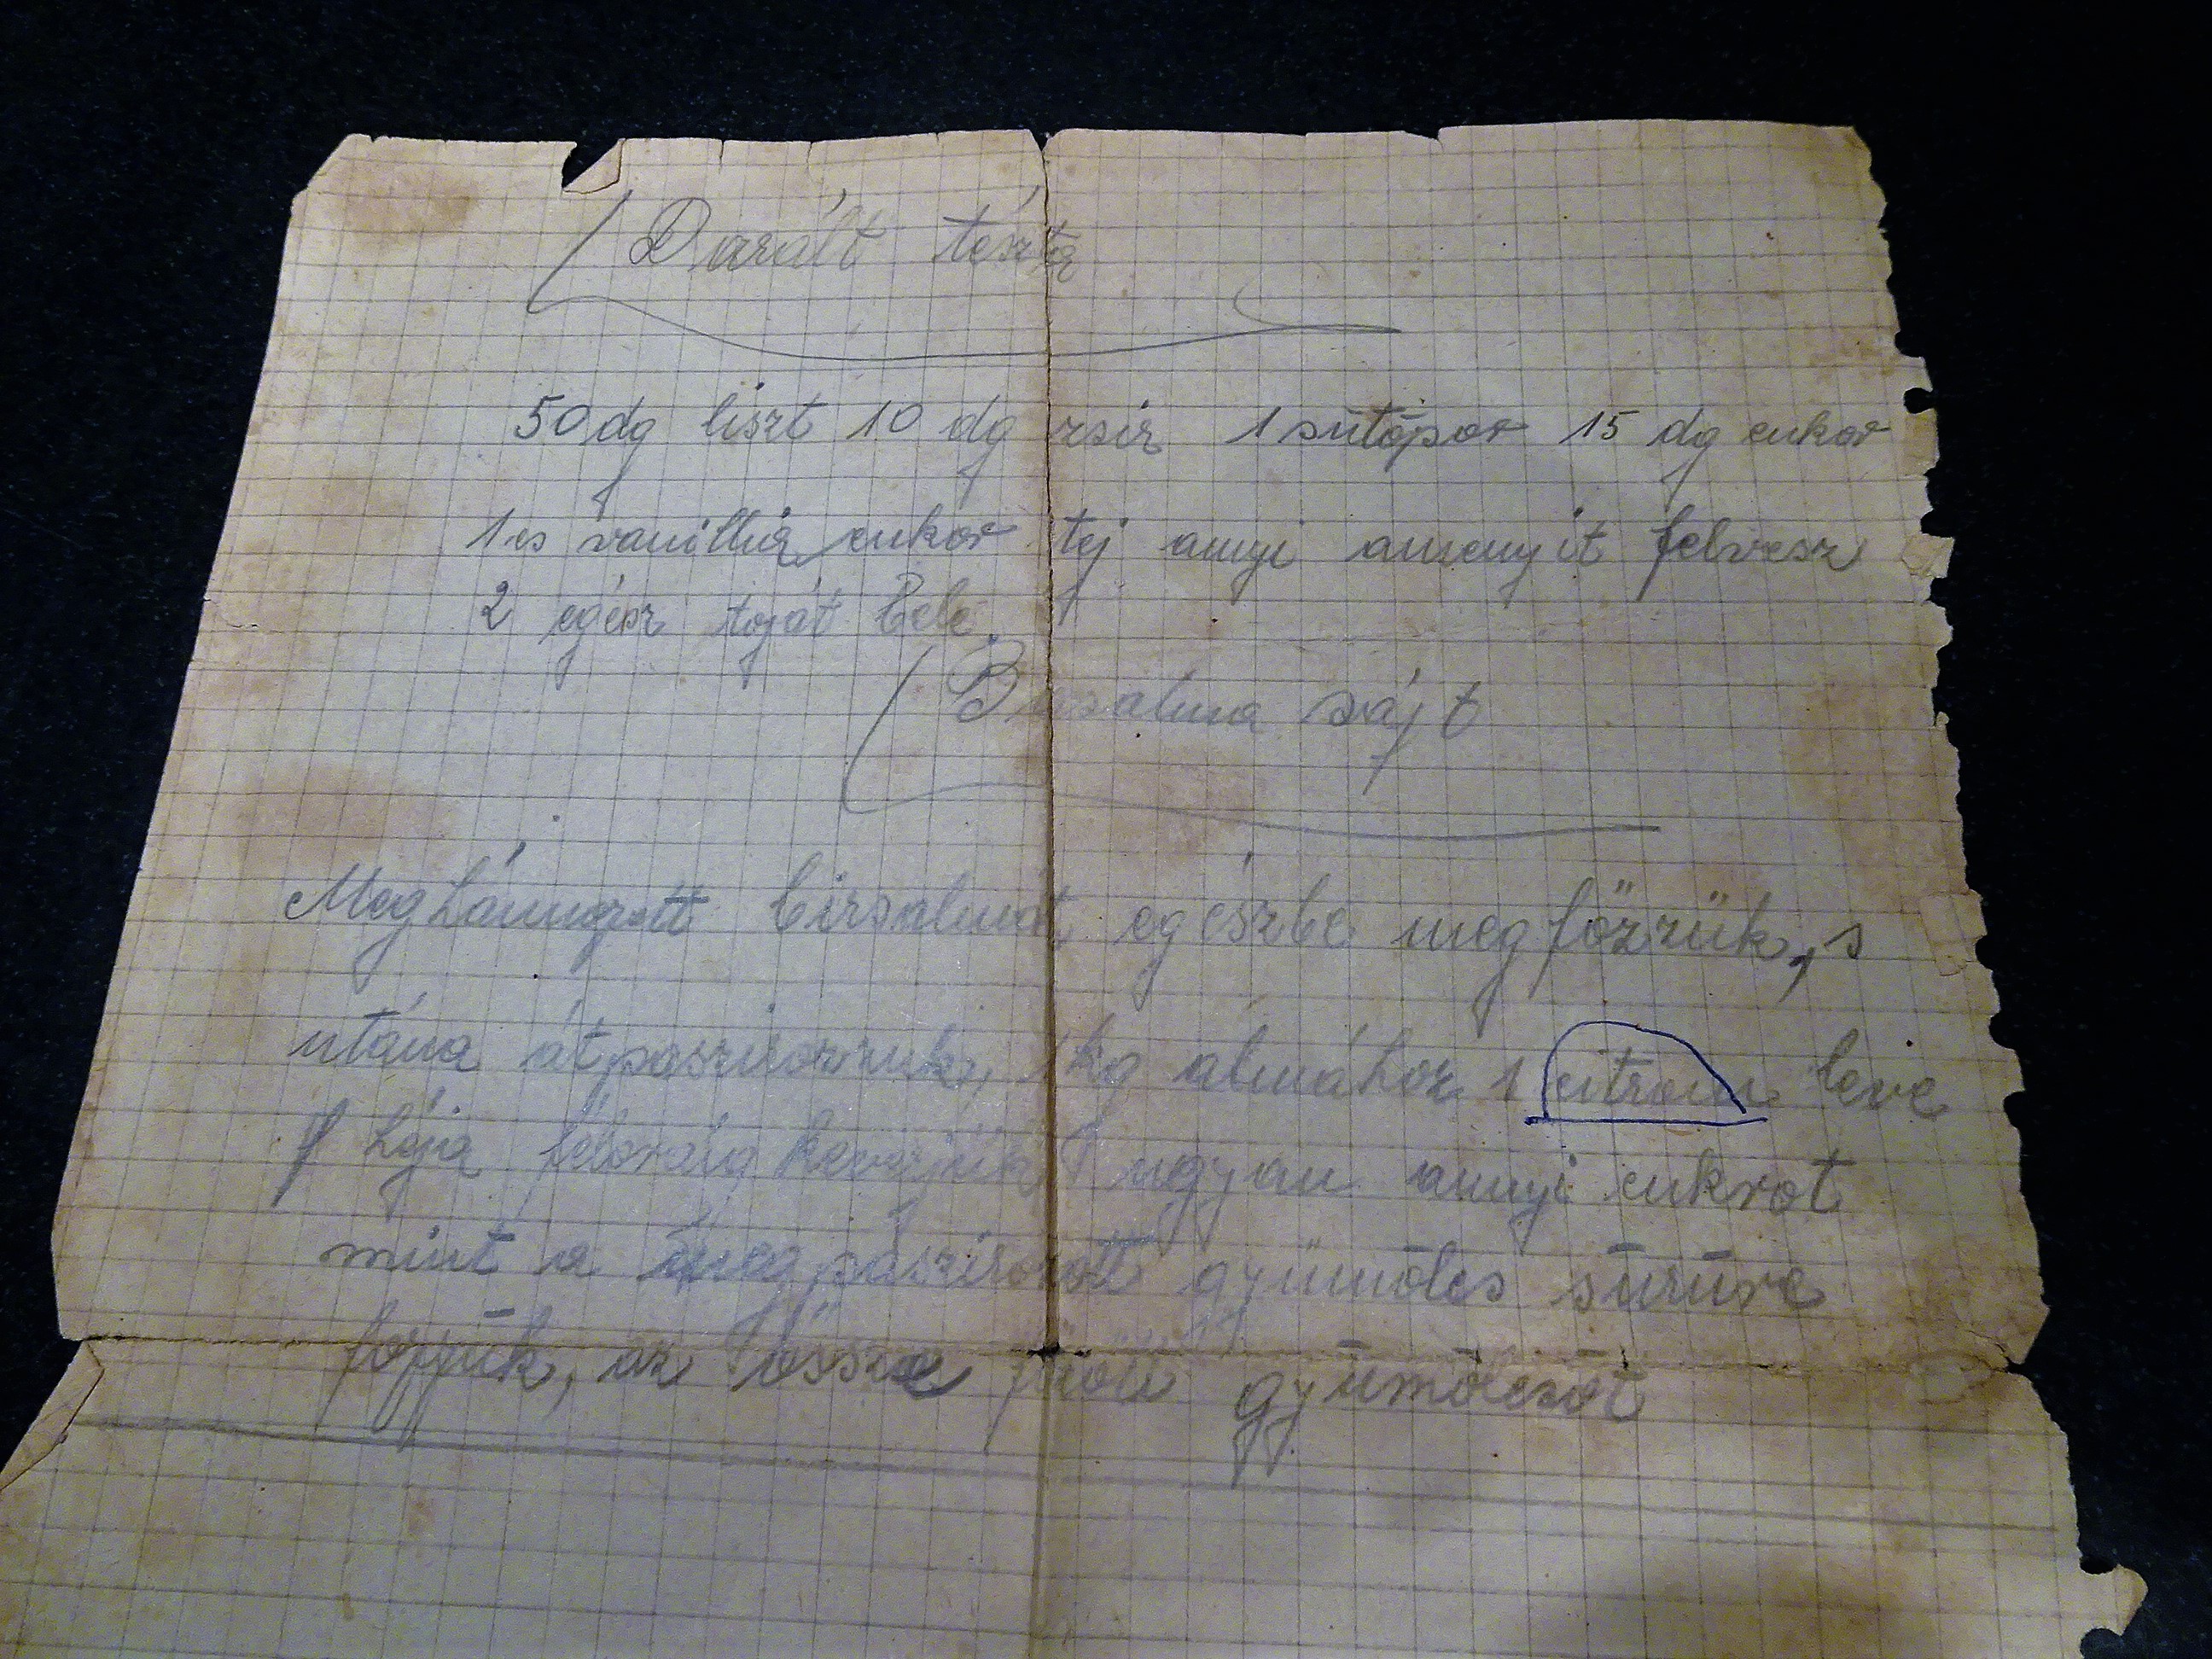 Darált tészta
50 dg liszt 10 dg zsir 1 sütöpor 15 dg cukor
1 cs vanillia cukor tej annyi amenyit felvesz
2 egész toját bele.
Birsalma sajt
Meghámozott birsalmát egészbe megfőzzük, s
utána átpaszirozzuk, 1 kg almához 1 citrom leve
s héja félóráig keverjük ugyan annyi cukrot
mint a megpaszirozott gyümölcs sürüre
főzzük, az össze főtt gyümölcsöt